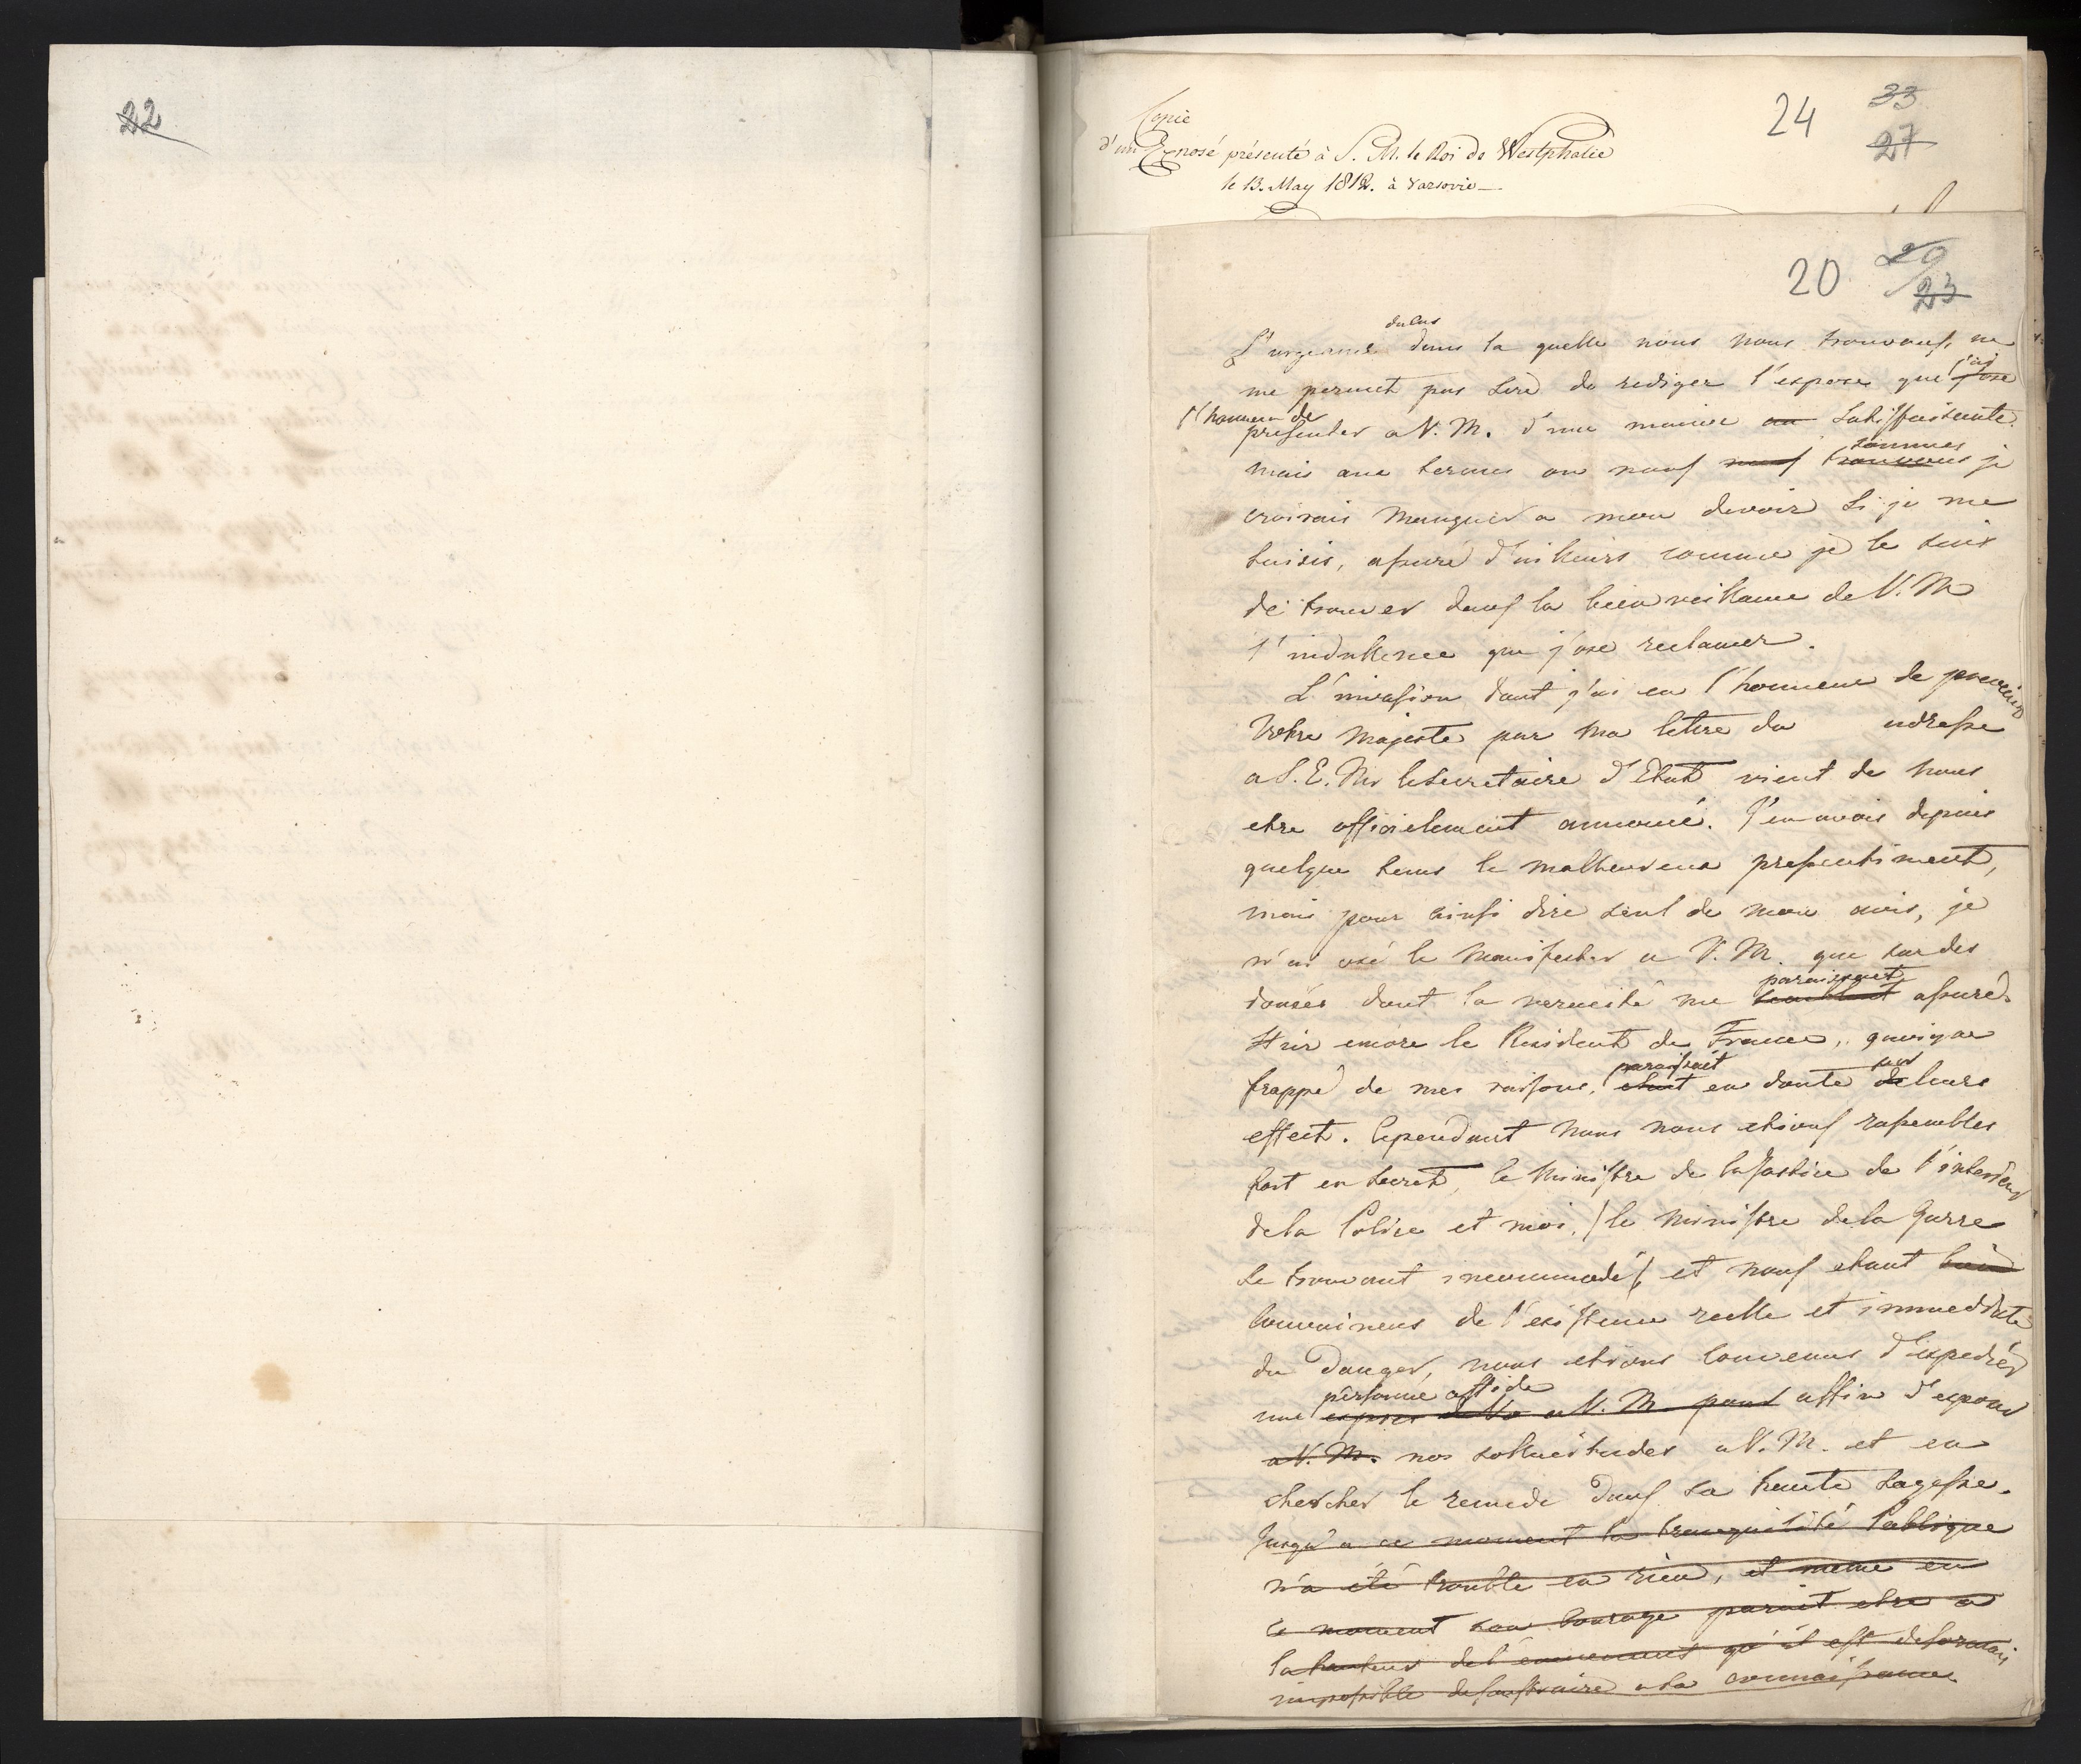 22
Copie
d'un Exposé présenté à S. M. le Roi de Westphalie
le 13. May 1812. à Varsovie
24
33
27
20
29
23
dans
L'urgeance dans la quelle nous nous trouvons, ne
me permet pas Sire de rediger l'expose que j'ose j'ai
l'honneur de
presenter a V. M. d'une maniere satisfaisante.
sommes
mais aux termes ou nous nous trouvons je
croirais manquer a mon devoir si je me
taisois, assuré d'ailleurs comme je le suis
de trouver dans la bienveillance de V. M
l'indullence que j'ose reclamer.
L'invasion dont j'ai eu l'honneur de prevenir
Votre Majeste par ma lettre du adresse
a S. E. Mr le Secretaire d'Etat vient de nous
etre officielement annoncé. J'en avois depuis
quelque tems le malheureux pressentiment,
mais pour ainsi dire seul de mon avis, je
n'ai osé le manifester a V. M. que sur des
paraissaient
donées dont la veracité me semblait assuré.
Hier encore le Resident de France, quoique
paraissait sur
frappé de mes raisons, etait en doute de leurs
effect. Cependant nous nous etions rassembles
fort en secret, le Ministre de la Justice de l'interieur
de la Police et moi, /le Ministre de la Guerre
se trouvant incommodé/ et nous etant bien
convaincus de l'existence reelle et immediate
du danger, nous etions convenus d'expedier
personne affidé
une expres a V. M. pour affin d'exposer
a V. M. nos sollicitudes a V. M. et en
chercher le remede dans sa haute sagesse.
Jusqu'a ce moment la tranquilité Publique
n'a été troublé en rien, et meme en
ce moment son courage parait etre a
la hauteur de l'evenement qu'il est desormais
impossible desoustraire a sa connaissance